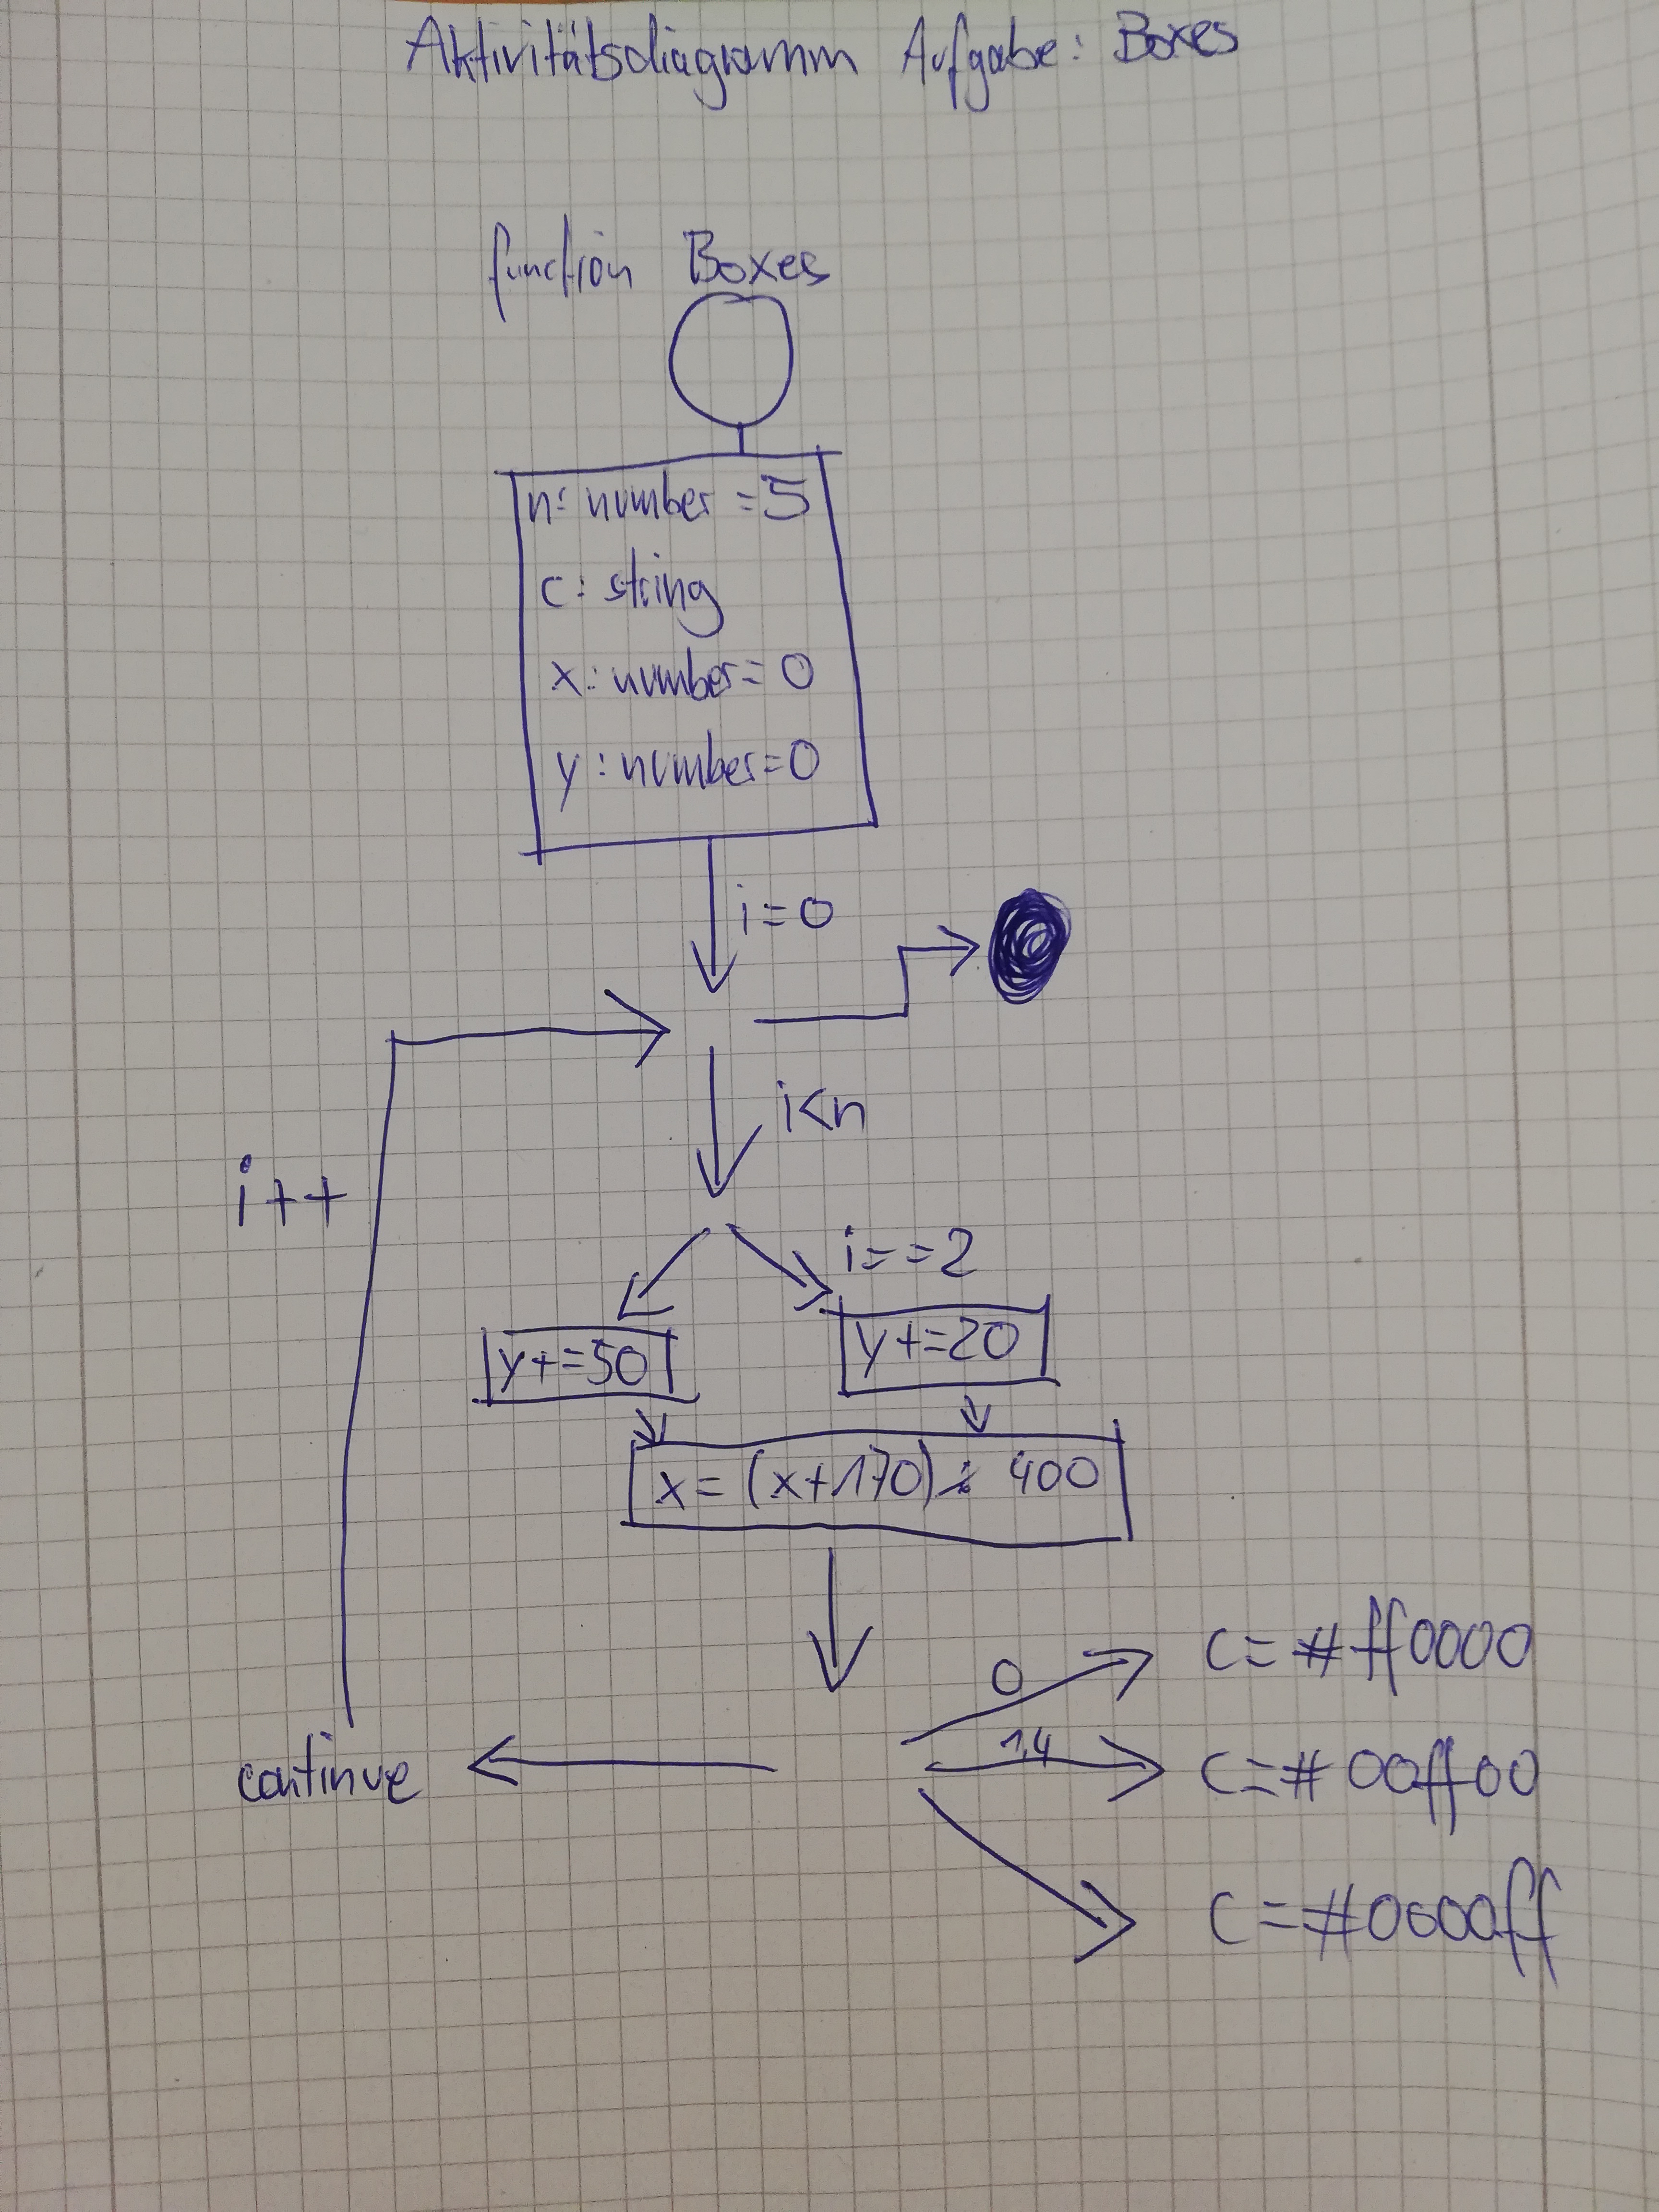 Aktivitätsdiagramm Aufgabe: Boxes
function Boxes
n: number = 5
c: string
x: number = 0
y: number = 0
i = 0
i<n
i++
i==2
y+=50
y+=20
x = (x+170) % 400
0
c = #ff0000
1,4
continue
c = #00ff00
c = #0000ff